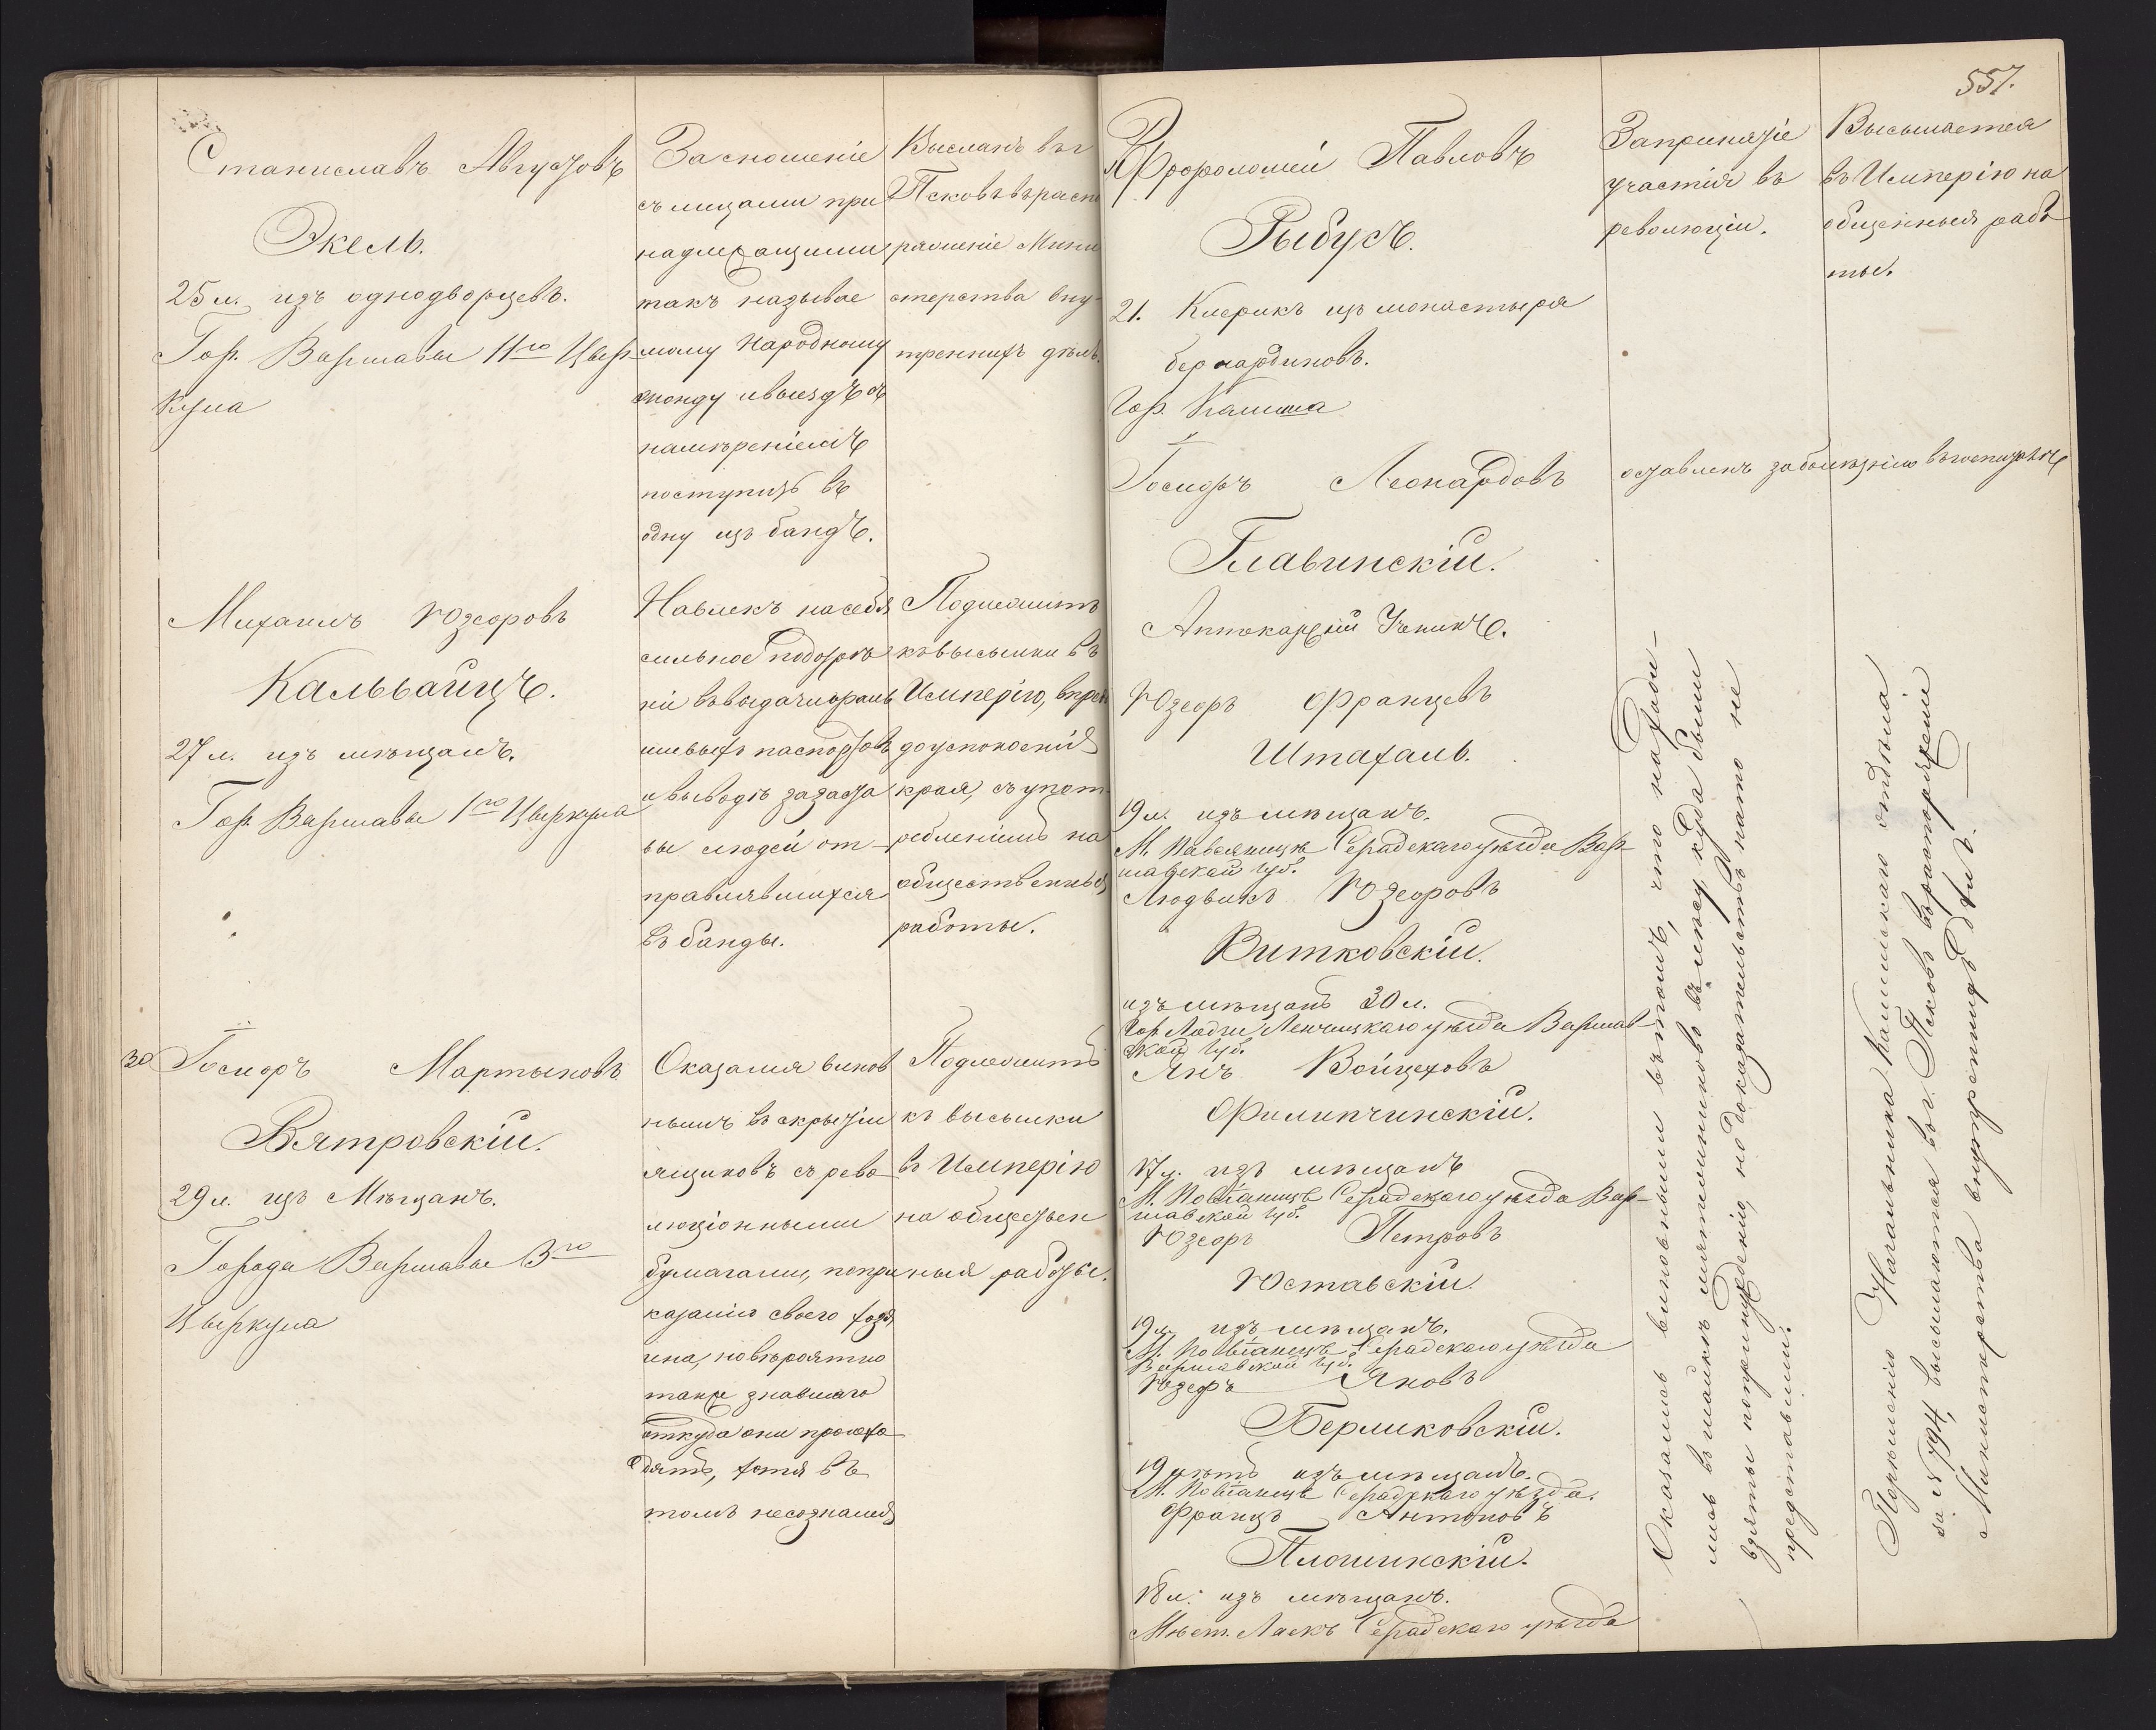 Станиславъ Августовъ
Экель.
25 л. изъ однодворцевъ.
Гор. Варшавы 11го Цыр-
кула
За сношеніе
съ лицами при
надлежащими
такъ называе
мому Народному
жонду и выездъ съ
намѣреніемъ
поступить въ
одну изъ бандъ.
Высланъ въ г
Псковъ въ расп
ряженіе Мини
стерства вну-
треннихъ дѣлъ.
Михаилъ Юзефовъ
Кальвайцъ.
27 л. изъ мѣщанъ.
Гор. Варшавы 1го Цыркула
Навлекъ на себя
сильное подозрѣ
ніе въ выдачи фаль
шивыхъ паспортовъ
и выводѣ за заста
вы людей от-
правлявшихся
въ банды.
Подлежитъ
къ высылки въ
Имперію, впредь
до успокоенія
края, съ упот
ребленіемъ на
общественныя
работы.
30 Іосифъ Мартыновъ
Вятровскій.
29 л. изъ Мѣщанъ.
Города Варшавы 3го
Цыркула
Оказался винов
нымъ въ скрытіи
ящиковъ съ рево-
люціонными
бумагами, по при
казанію своего хозя
ина, но вѣроятно
также знавшаго
откуда они происхо-
дятъ, хотя въ
томъ не сознался
Подлежитъ
къ высылки
въ Имперію
на обществен
ныя работы.
557.
Павловъ
Рыбусъ.
21. Клерикъ изъ монастыря
бернардиновъ.
Гор. Калиша
За принятіе
участія въ
революціи.
Высылается
въ Имперію на
общенныя рабо
ты.
Іосифъ Леонардовъ
Главинскій.
Аптокарскій Ученикъ.
оставленъ за болѣзнію въ госпиталѣ
Юзефъ Францевъ
Штахаль.
19 л. изъ мѣщанъ.
М. Пабяницъ Серадскаго уѣзда Вар-
шавской губ.
Людвикъ Юзефовъ
Витковскій.
изъ мѣщанъ 30 л.
Гор. Лодзи Ленчицкаго уѣзда Варшав
ской губ.
Янъ Войцеховъ
Филипчинскій.
17 л. изъ мѣщанъ
М. Пабіаницъ Серадскаго уѣзда Вар-
шавской губ.
Юзефъ Петровъ
Юставскій.
19 л. изъ мѣщанъ.
М. Пабіаницъ Серадскаго уѣзда
Варшавской губ.
Юзефъ Яновъ
Берликовскій.
19 лѣтъ изъ мѣщанъ.
М. Пабіаницъ Серадскаго уѣзда.
Францъ Антоновъ
Плошинскій.
18 л. изъ мѣщанъ.
Мѣст. Ласкъ Серадскаго уѣзда
Оказались виновными въ томъ, что находи-
лись въ шайкѣ мятежниковъ въ лѣсу, куда были
взяты по принужденію, но доказательствъ на то не
представили.
По рѣшенію Начальника Калишскаго отдѣла
за № 794, высылаются въ г. Псковъ въ распоряженіе
Министерства внутреннихъ дѣлъ.